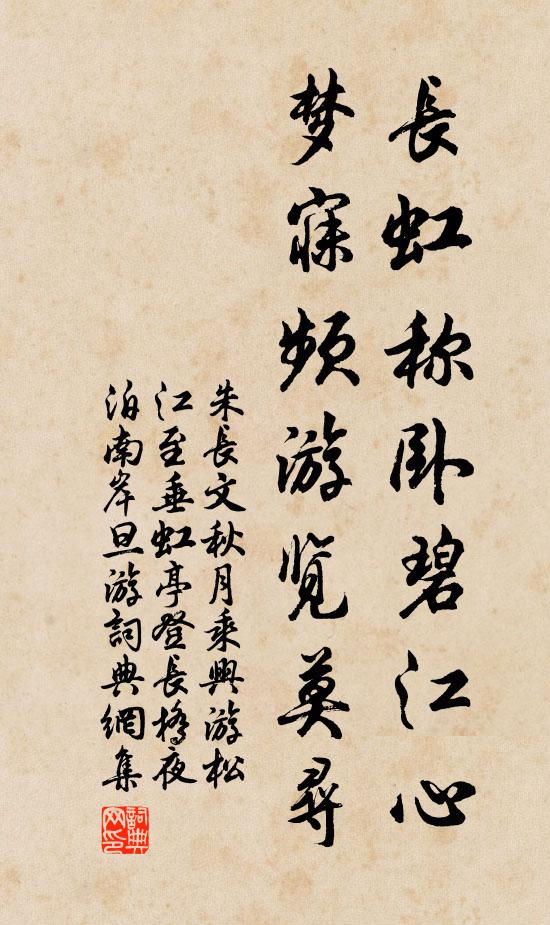 長虹称卧碧江心
梦寐频游览莫尋
朱長文秋月乘興游松
江至垂虹亭登長橋夜
泊南岸旦游詞典網集
詞典網印